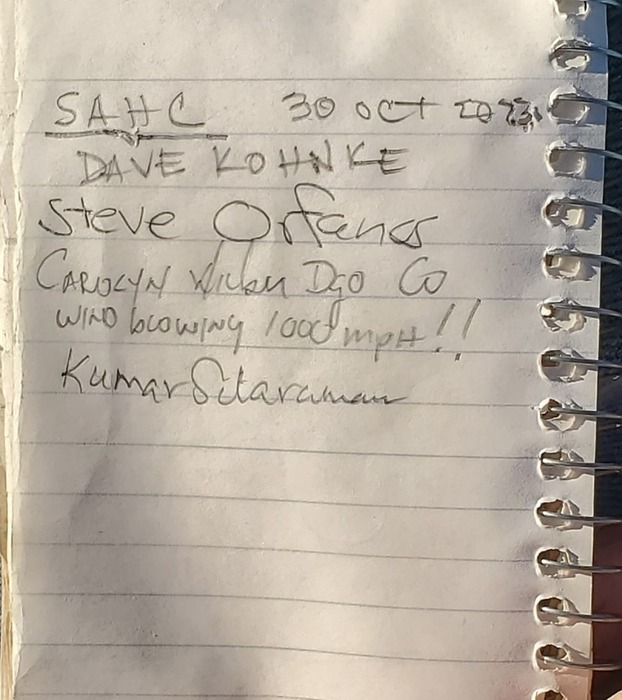 SAHC 30 OCT 2023
DAVE KOHNKE
Steve Orfanos
CAROLYN DGO CO
WIND blowing 1000 mpH!!
Kumar Sitaraman